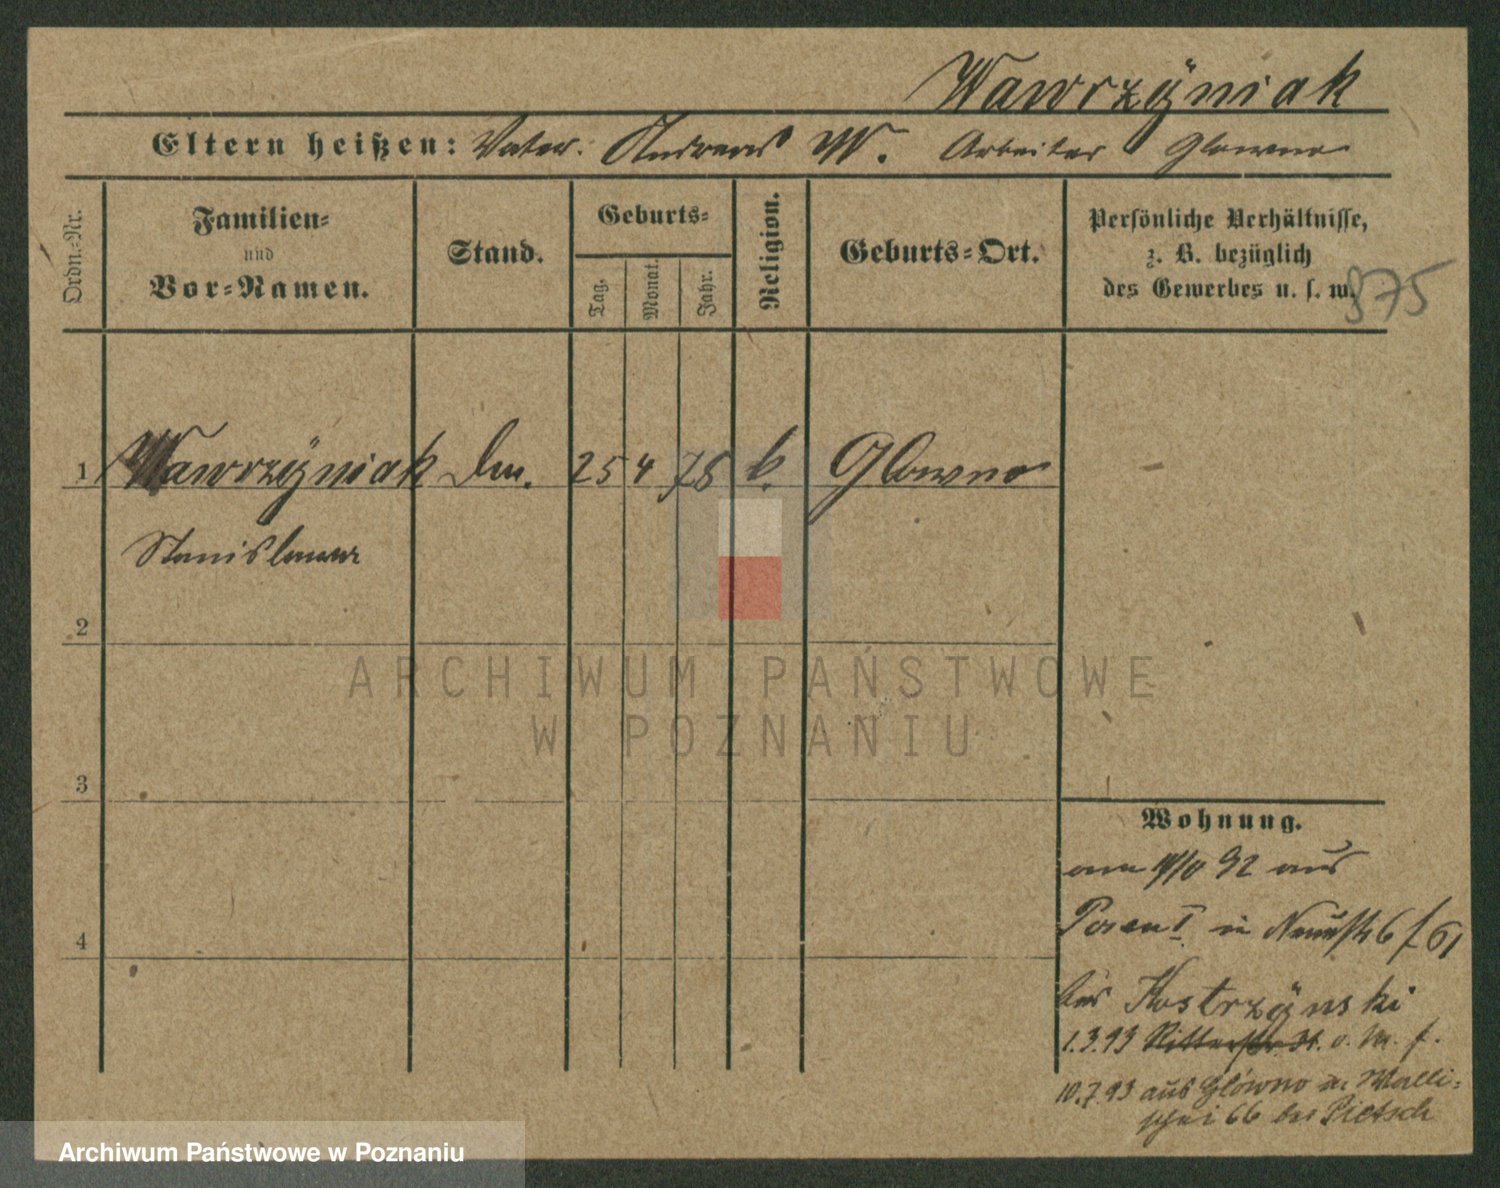 Wawrzÿniak
Eltern heißen: Vater: Andreas W. Arbeiter Glowno
Ordn.-Nr.
Familien-
und
Vor-Namen.
Stand.
Geburts-
Tag.
Monat.
Jahr.
Religion.
Geburts-Ort.
Persönliche Verhältnisse,
z. B. bezüglich
des Gewerbes u. s. w.
975
1 Wawrzÿniak 25 4 78 k. Glowno
Stanislaus
2
3
4
Wohnung.
92 aus
Posen I in 6
bei Kostrzÿnski
1.3.93 Ritterstr.
10.7.93 aus Glówno in Walli-
schei 66 bei Pietsch
ARCHIWUM PAŃSTWOWE
W POZNANIU
Archiwum Państwowe w Poznaniu